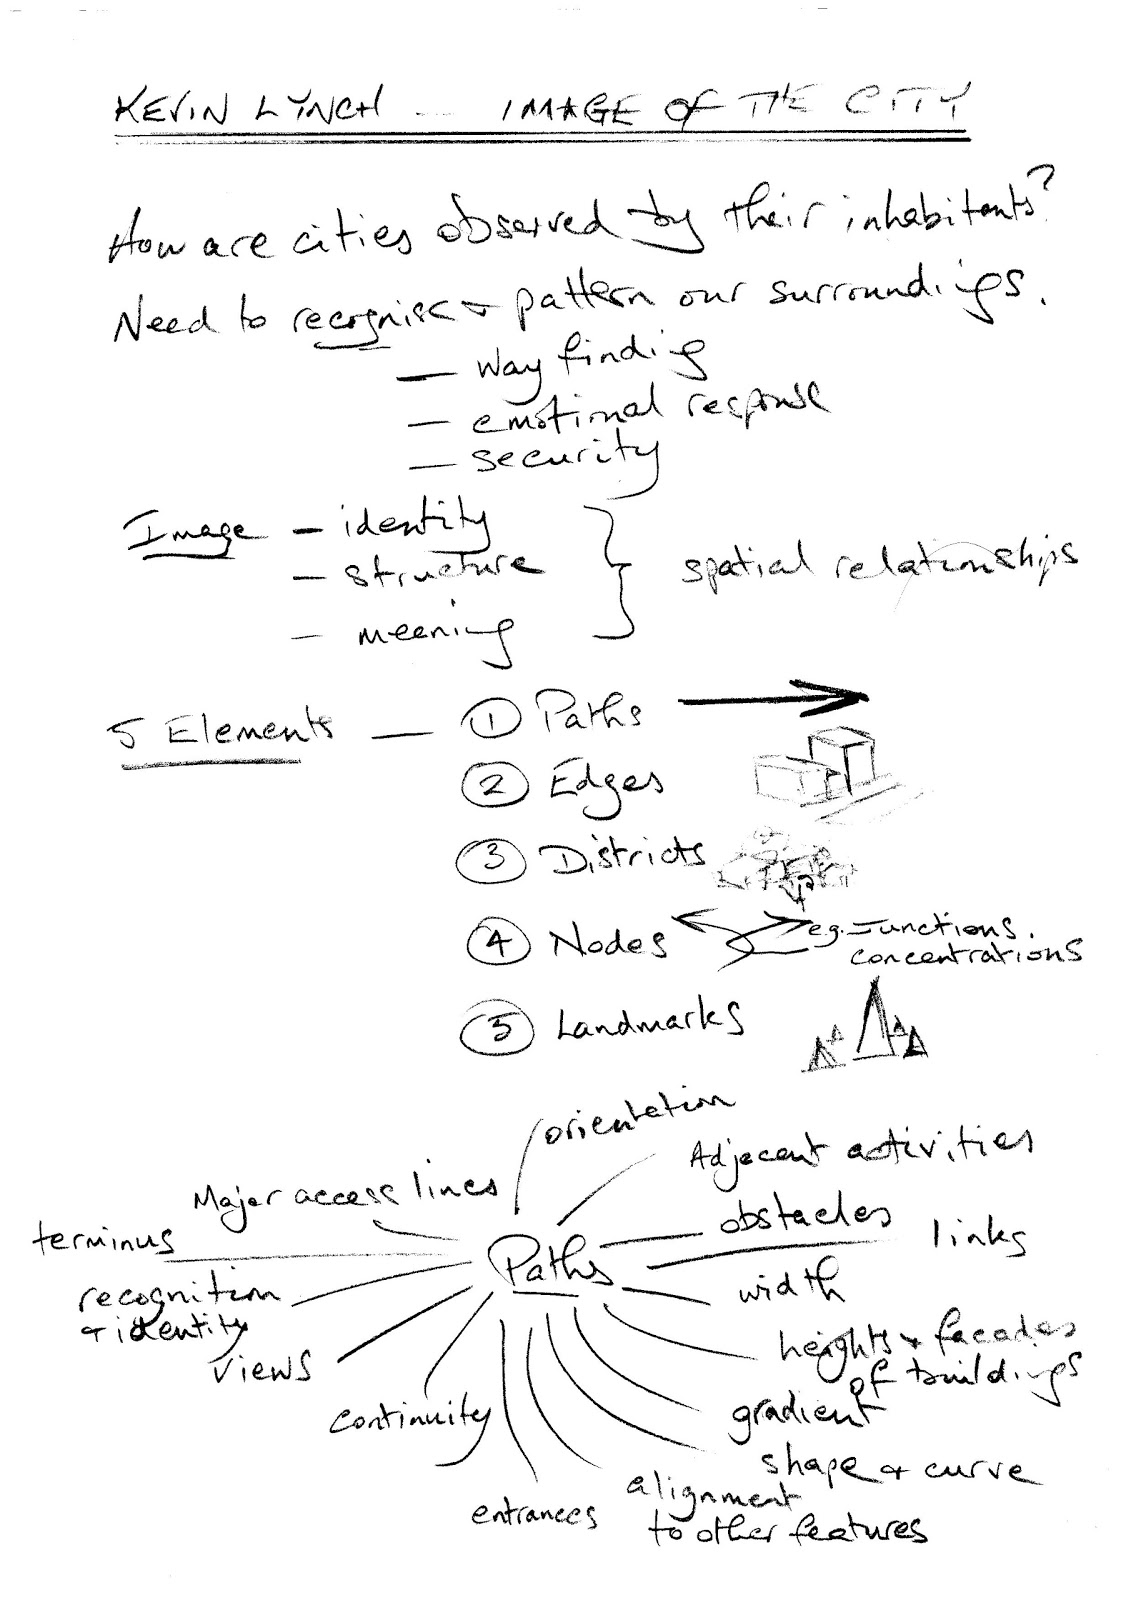 KEVIN LYNCH -- IMAGE OF THE CITY
How are cities observed by their inhabitants?
Need to recognise + pattern our surroundings.
— way finding
— emotional response
— security
Image — identity
— structure
— meaning
spatial relationships
5 Elements — ① Paths
② Edges
③ Districts
④ Nodes
eg. Junctions.
concentrations
⑤ Landmarks
orientation
Adjacent activities
Major access lines
obstacles
links
terminus
Paths
width
recognition
+ identity
heights + facades
of buildings
views
gradient
continuity
shape + curve
alignment
to other features
entrances